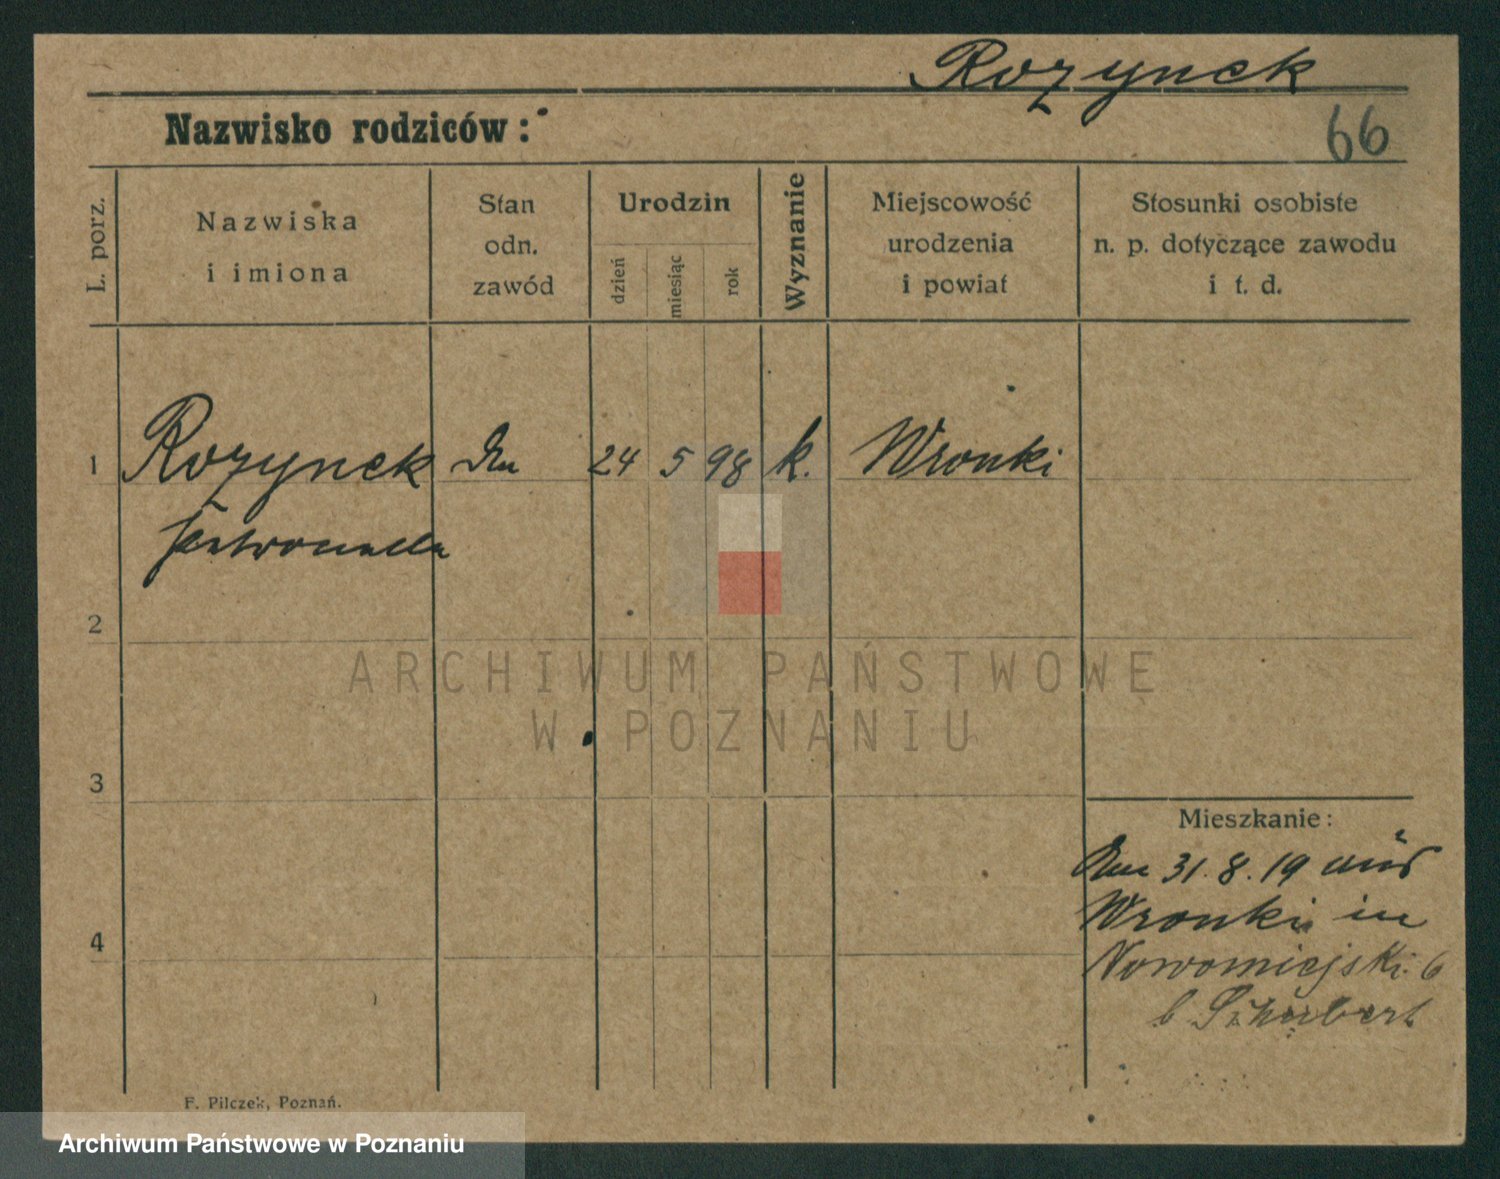 Rozynek
66
Nazwisko rodziców:
L. porz.
Nazwiska
i imiona
Stan
odn.
zawód
Urodzin
dzień
miesiąc
rok
Wyznanie
Miejscowość
urodzenia
i powiat
Stosunki osobiste
n. p. dotyczące zawodu
i t. d.
1 Rozynek 24 5 98 k. Wronki
Petronella
2
ARCHIWUM PAŃSTWOWE
W POZNANIU
3
4
Mieszkanie:
31. 8. 19 aus
Wronki in
Nowomiejski. 6
b Schubert
F. Pilczek, Poznań.
Archiwum Państwowe w Poznaniu